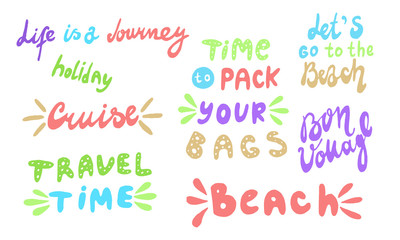 Life is a Journey
holiday
Cruise
TRAVEL
TIME
TIME
to PACK
YOUR
BAGS
Beach
Let's
GO to the
Beach
Bon
Voyage